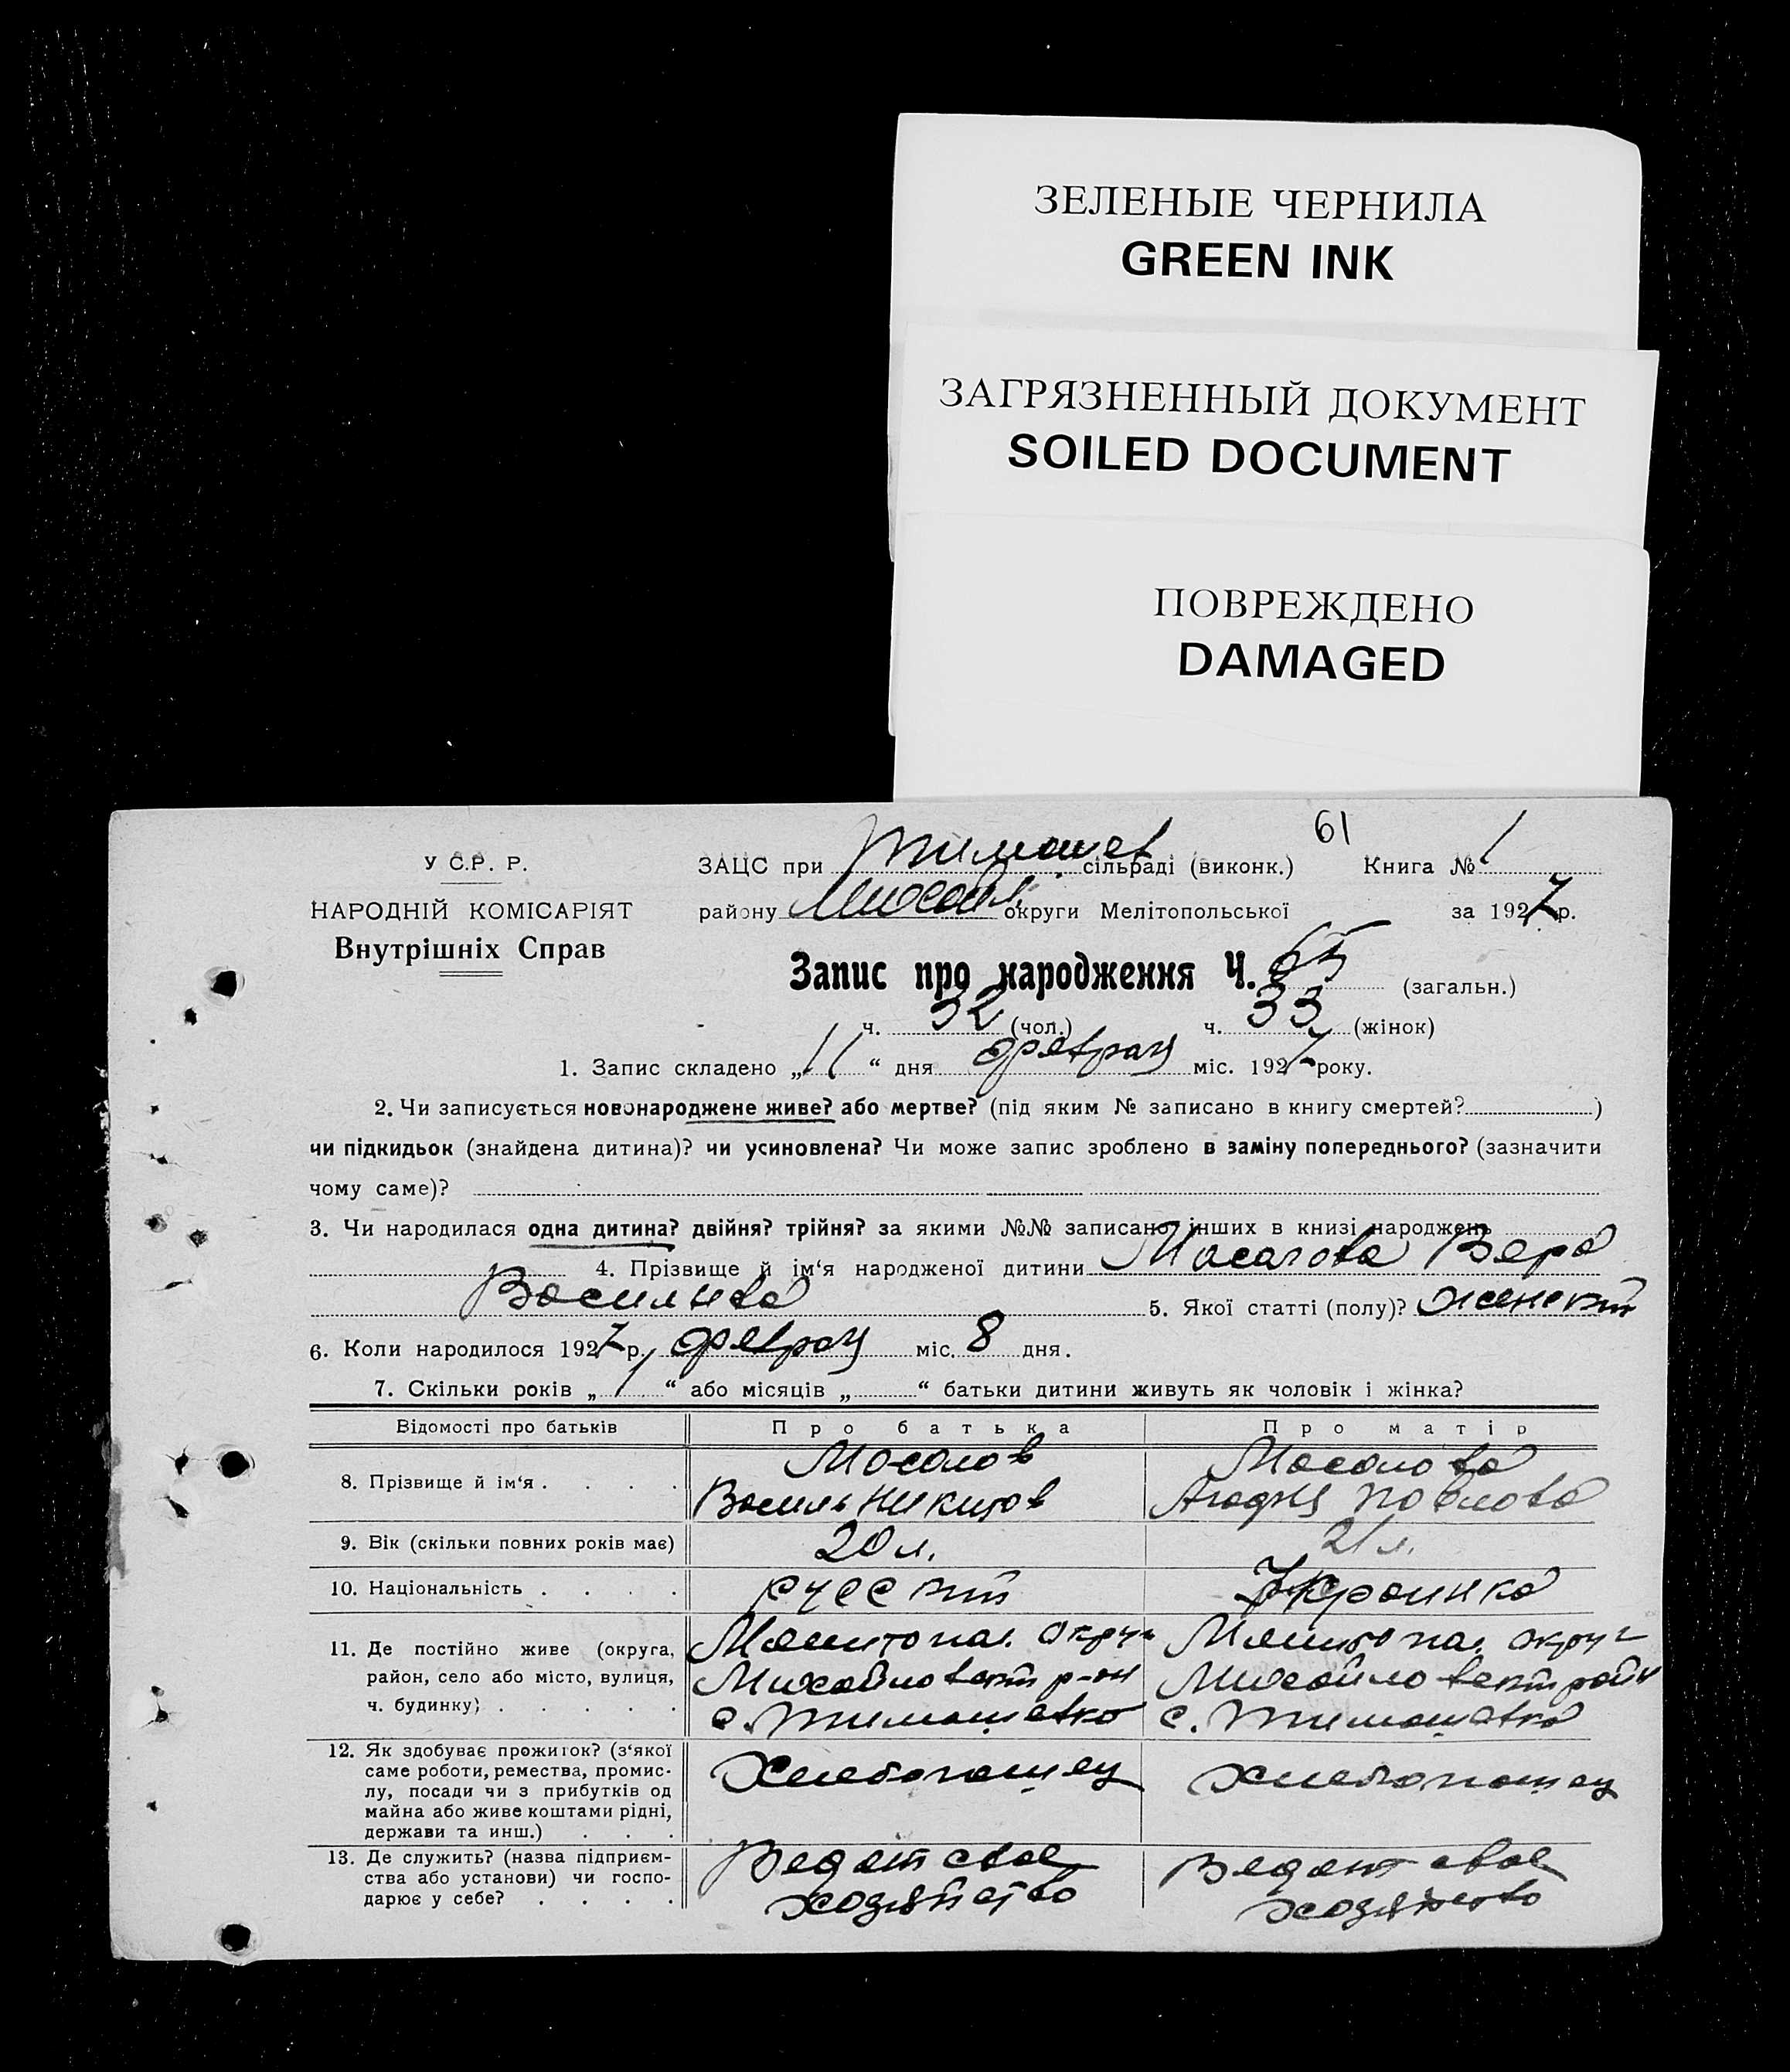 ЗЕЛЕНЫЕ ЧЕРНИЛА
GREEN INK
ЗАГРЯЗНЕННЫЙ ДОКУМЕНТ
SOILED DOCUMENT
ПОВРЕЖДЕНО
DAMAGED
61
У С.Р. Р.
НАРОДНІЙ КОМІСАРІЯТ
Внутрішніх Справ
ЗАЦС при Тимошев сільраді (виконк.) Книга № 1
району Михайл. округи Мелітопольської за 1927 р.
Запис про народження Ч. 65 (загальн.)
ч. 32 (чол.) ч. 33 (жінок)
1. Запис складено „11“ дня февраля міс. 1927 року.
2. Чи записується новонароджене живе? або мертве? (під яким № записано в книгу смертей? )
чи підкидьок (знайдена дитина)? чи усиновлена? Чи може запис зроблено в заміну попереднього? (зазначити
чому саме)?
3. Чи народилася одна дитина? двійня? трійня? за якими №№ записано інших в книзі народжень
4. Прізвище й ім'я народженої дитини Масалова Вера
Васильева 5. Якої статті (полу)? женский
6. Коли народилося 1927 р. февраля міс. 8 дня.
7. Скільки років „1“ або місяців „ “ батьки дитини живуть як чоловік і жінка?
Відомості про батьків Про батька Про матір
8. Прізвище й ім'я . . . . Мосалов Масалова
Василь Никитов Агафия Павлова
9. Вік (скільки повних років має) 20 л. 21 л.
10. Національність . . . . русский Украинка
11. Де постійно живе (округа, район, село або місто, вулиця, ч. будинку) . . . . .
Мелитопол. округ Мелитопол. округ
Михайловский р-он Михайловский район
с. Тимошевка с. Тимошевка
12. Як здобуває прожиток? (з'якої
саме роботи, ремества, промис-
лу, посади чи з прибутків од
майна або живе коштами рідні,
держави та инш.) . . .
Хлебопашец хлебопашец
13. Де служить? (назва підприєм-
ства або установи) чи госпо-
дарює у себе? . . . .
Ведет свое Ведет свое
хозяйство хозяйство